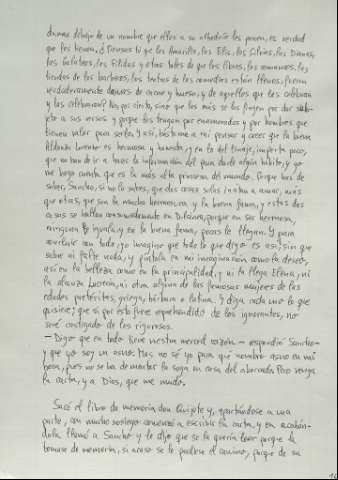 damas debajo de un nombre que ellos a su albedrío les ponen, es verdad
que las tienen. ¿Piensas tú que las Amarilis, las Filis, las Silvias, las Dianas,
las Galateas, las Fílidas y otras tales de que los libros, los romances, las
tiendas de los barberos, los teatros de las comedias están llenos, fueron
verdaderamente damas de carne y hueso, y de aquellos que las celebran
y las celebraron? No, por cierto, sino que las más se las fingen por dar sub-
jeto a sus versos y porque los tengan por enamorados y por hombres que
tienen valor para serlo. Y así, bástame a mí pensar y creer que la buena
Aldonza Lorenzo es hermosa y honesta, y en lo del linaje, importa poco,
que no han de ir a hacer la información dél para darle algún hábito, y yo
me hago cuenta que es la más alta princesa del mundo. Porque has de
saber, Sancho, si no lo sabes, que dos cosas solas incitan a amar, más
que otras, que son la mucha hermosura y la buena fama, y estas dos
cosas se hallan consumadamente en Dulcinea, porque en ser hermosa,
ninguna le iguala, y en la buena fama, pocas le llegan. Y para
concluir con todo, yo imagino que todo lo que digo es así, sin que
sobre ni falte nada, y píntola en mi imaginación como la deseo,
así en la belleza como en la principalidad, y ni la llega Elena, ni
la alcanza Lucrecia, ni otra alguna de las famosas mujeres de las
edades pretéritas, griega, bárbara o latina. Y diga cada uno lo que
quisiere; que si por esto fuere reprehendido de los ignorantes, no
seré castigado de los rigurosos.
—Digo que en todo tiene vuestra merced razón —respondió Sancho—
y que yo soy un asno. Mas no sé yo para qué nombro asno en mi
boca, pues no se ha de mentar la soga en casa del ahorcado. Pero venga
la carta, y a Dios, que me mudo.
Sacó el libro de memoria don Quijote y, apartándose a una
parte, con mucho sosiego comenzó a escribir la carta, y en acabán-
dola, llamó a Sancho y le dijo que se la quería leer porque la
tomase de memoria, si acaso se le perdiese el camino, porque de su